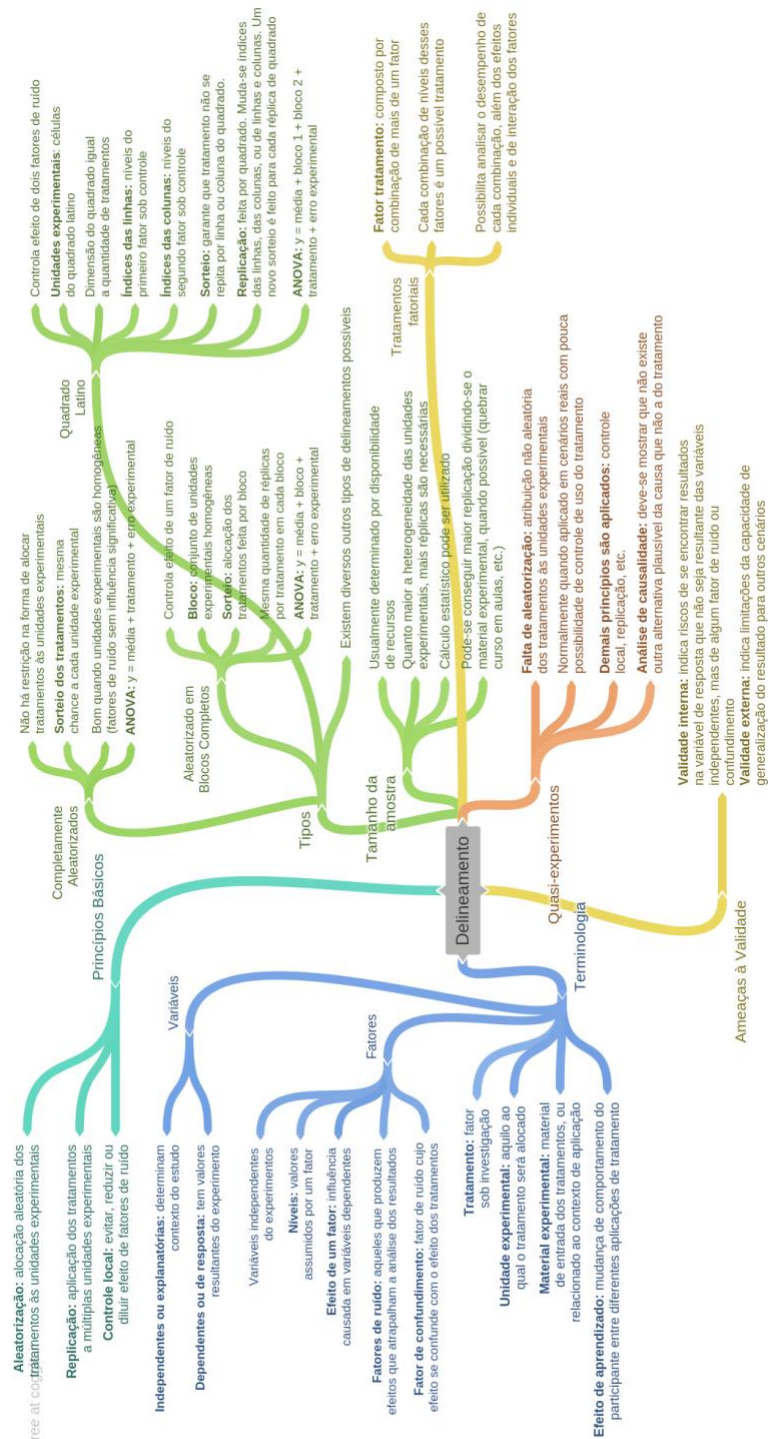 Delineamento
Princípios Básicos
Aleatorização: alocação aleatória dos
tratamentos às unidades experimentais
Replicação: aplicação dos tratamentos
a múltiplas unidades experimentais
Controle local: evitar, reduzir ou
diluir efeito de fatores de ruído
Terminologia
Variáveis
Independentes ou explanatórias: determinam
contexto do estudo
Dependentes ou de resposta: tem valores
resultantes do experimento
Fatores
Variáveis independentes
do experimentos
Níveis: valores
assumidos por um fator
Efeito de um fator: influência
causada em variáveis dependentes
Fatores de ruído: aqueles que produzem
efeitos que atrapalham a análise dos resultados
Fator de confundimento: fator de ruído cujo
efeito se confunde com o efeito dos tratamentos
Tratamento: fator
sob investigação
Unidade experimental: aquilo ao
qual o tratamento será alocado
Material experimental: material
de entrada dos tratamentos, ou
relacionado ao contexto de aplicação
Efeito de aprendizado: mudança de comportamento do
participante entre diferentes aplicações de tratamento
Tipos
Completamente
Aleatorizados
Não há restrição na forma de alocar
tratamentos às unidades experimentais
Sorteio dos tratamentos: mesma
chance a cada unidade experimental
Bom quando unidades experimentais são homogêneas
(fatores de ruído sem influência significativa)
ANOVA: y = média + tratamento + erro experimental
Aleatorizado em
Blocos Completos
Controla efeito de um fator de ruído
Bloco: conjunto de unidades
experimentais homogêneas
Sorteio: alocação dos
tratamentos feita por bloco
Mesma quantidade de réplicas
por tratamento em cada bloco
ANOVA: y = média + bloco +
tratamento + erro experimental
Quadrado
Latino
Controla efeito de dois fatores de ruído
Unidades experimentais: células
do quadrado latino
Dimensão do quadrado igual
a quantidade de tratamentos
Índices das linhas: níveis do
primeiro fator sob controle
Índices das colunas: níveis do
segundo fator sob controle
Sorteio: garante que tratamento não se
repita por linha ou coluna do quadrado.
Replicação: feita por quadrado. Muda-se índices
das linhas, das colunas, ou de linhas e colunas. Um
novo sorteio é feito para cada réplica de quadrado
ANOVA: y = média + bloco 1 + bloco 2 +
tratamento + erro experimental
Existem diversos outros tipos de delineamentos possíveis
Tamanho da
amostra
Usualmente determinado por disponibilidade
de recursos
Quanto maior a heterogeneidade das unidades
experimentais, mais réplicas são necessárias
Cálculo estatístico pode ser utilizado
Pode-se conseguir maior replicação dividindo-se o
material experimental, quando possível (quebrar
curso em aulas, etc.)
Tratamentos
fatoriais
Fator tratamento: composto por
combinação de mais de um fator
Cada combinação de níveis desses
fatores é um possível tratamento
Possibilita analisar o desempenho de
cada combinação, além dos efeitos
individuais e de interação dos fatores
Quasi-experimentos
Falta de aleatorização: atribuição não aleatória
dos tratamentos às unidades experimentais
Normalmente quando aplicado em cenários reais com pouca
possibilidade de controle de uso do tratamento
Demais princípios são aplicados: controle
local, replicação, etc.
Análise de causalidade: deve-se mostrar que não existe
outra alternativa plausível da causa que não a do tratamento
Ameaças à Validade
Validade interna: indica riscos de se encontrar resultados
na variável de resposta que não seja resultante das variáveis
independentes, mas de algum fator de ruído ou
confundimento
Validade externa: indica limitações da capacidade de
generalização do resultado para outros cenários
ree at